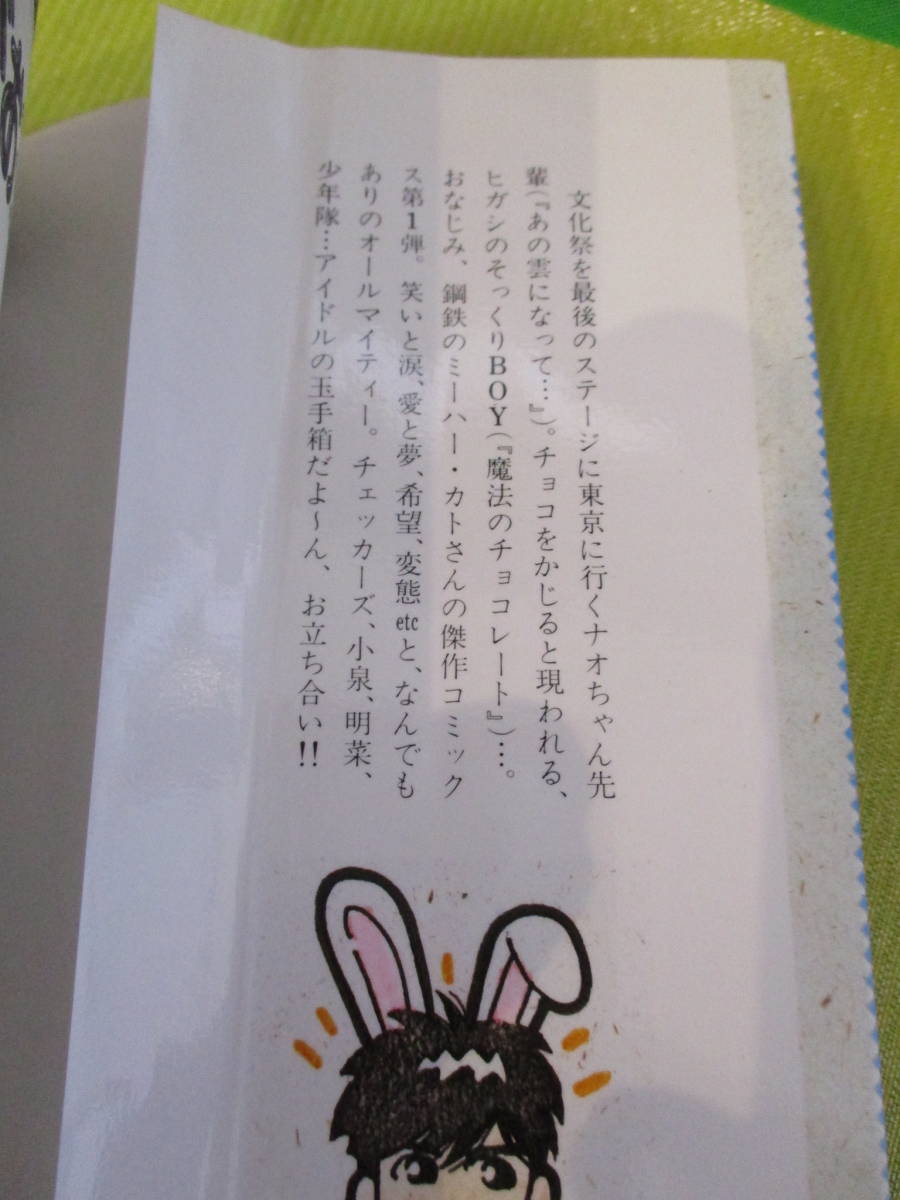 文化祭を最後のステージに東京に行くナオちゃん先
輩(『あの雲になって…』)。チョコをかじると現われる、
ヒガシのそっくりBOY(『魔法のチョコレート』)…。
おなじみ、鋼鉄のミーハー・カトさんの傑作コミック
ス第1弾。笑いと涙、愛と夢、希望、変態etcと、なんでも
ありのオールマイティー。チェッカーズ、小泉、明菜、
少年隊…アイドルの玉手箱だよ〜ん、お立ち合い!!